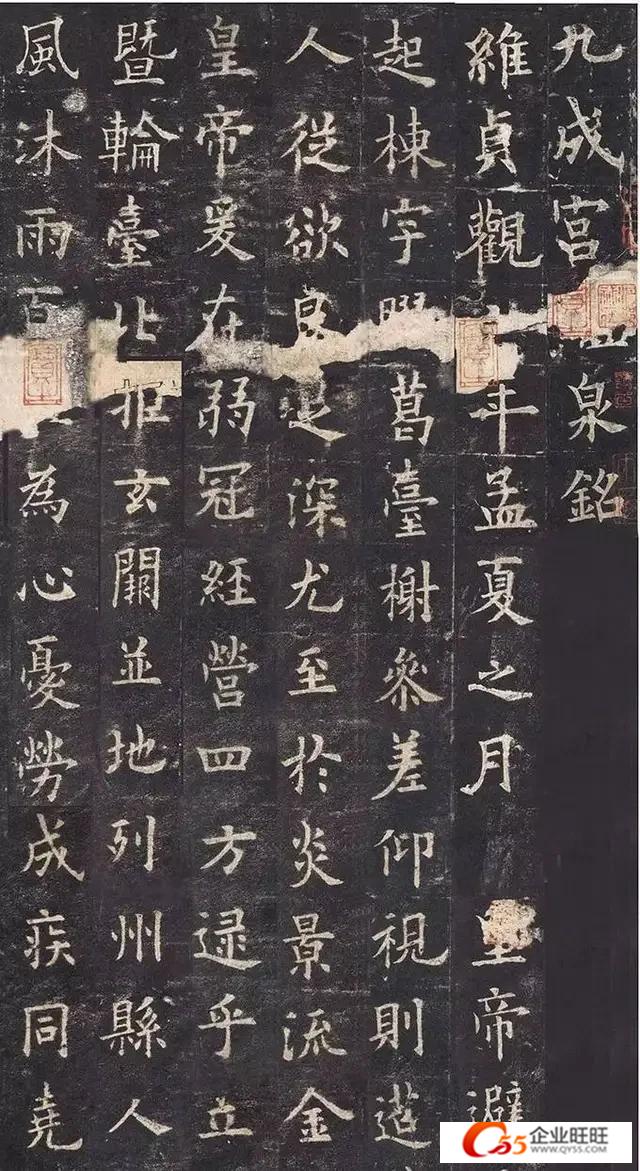 九成宮泉銘
維貞觀年孟夏之月 皇帝避
起棟宇葛臺榭參差仰視則迢
人從欲良足深尤至於炎景流金
皇帝爰在弱冠經營四方逮乎立
暨輪臺北拒玄闕並地列州縣人
風沐雨百為心憂勞成疾同堯
55企业旺旺
WWW.QY55.COM